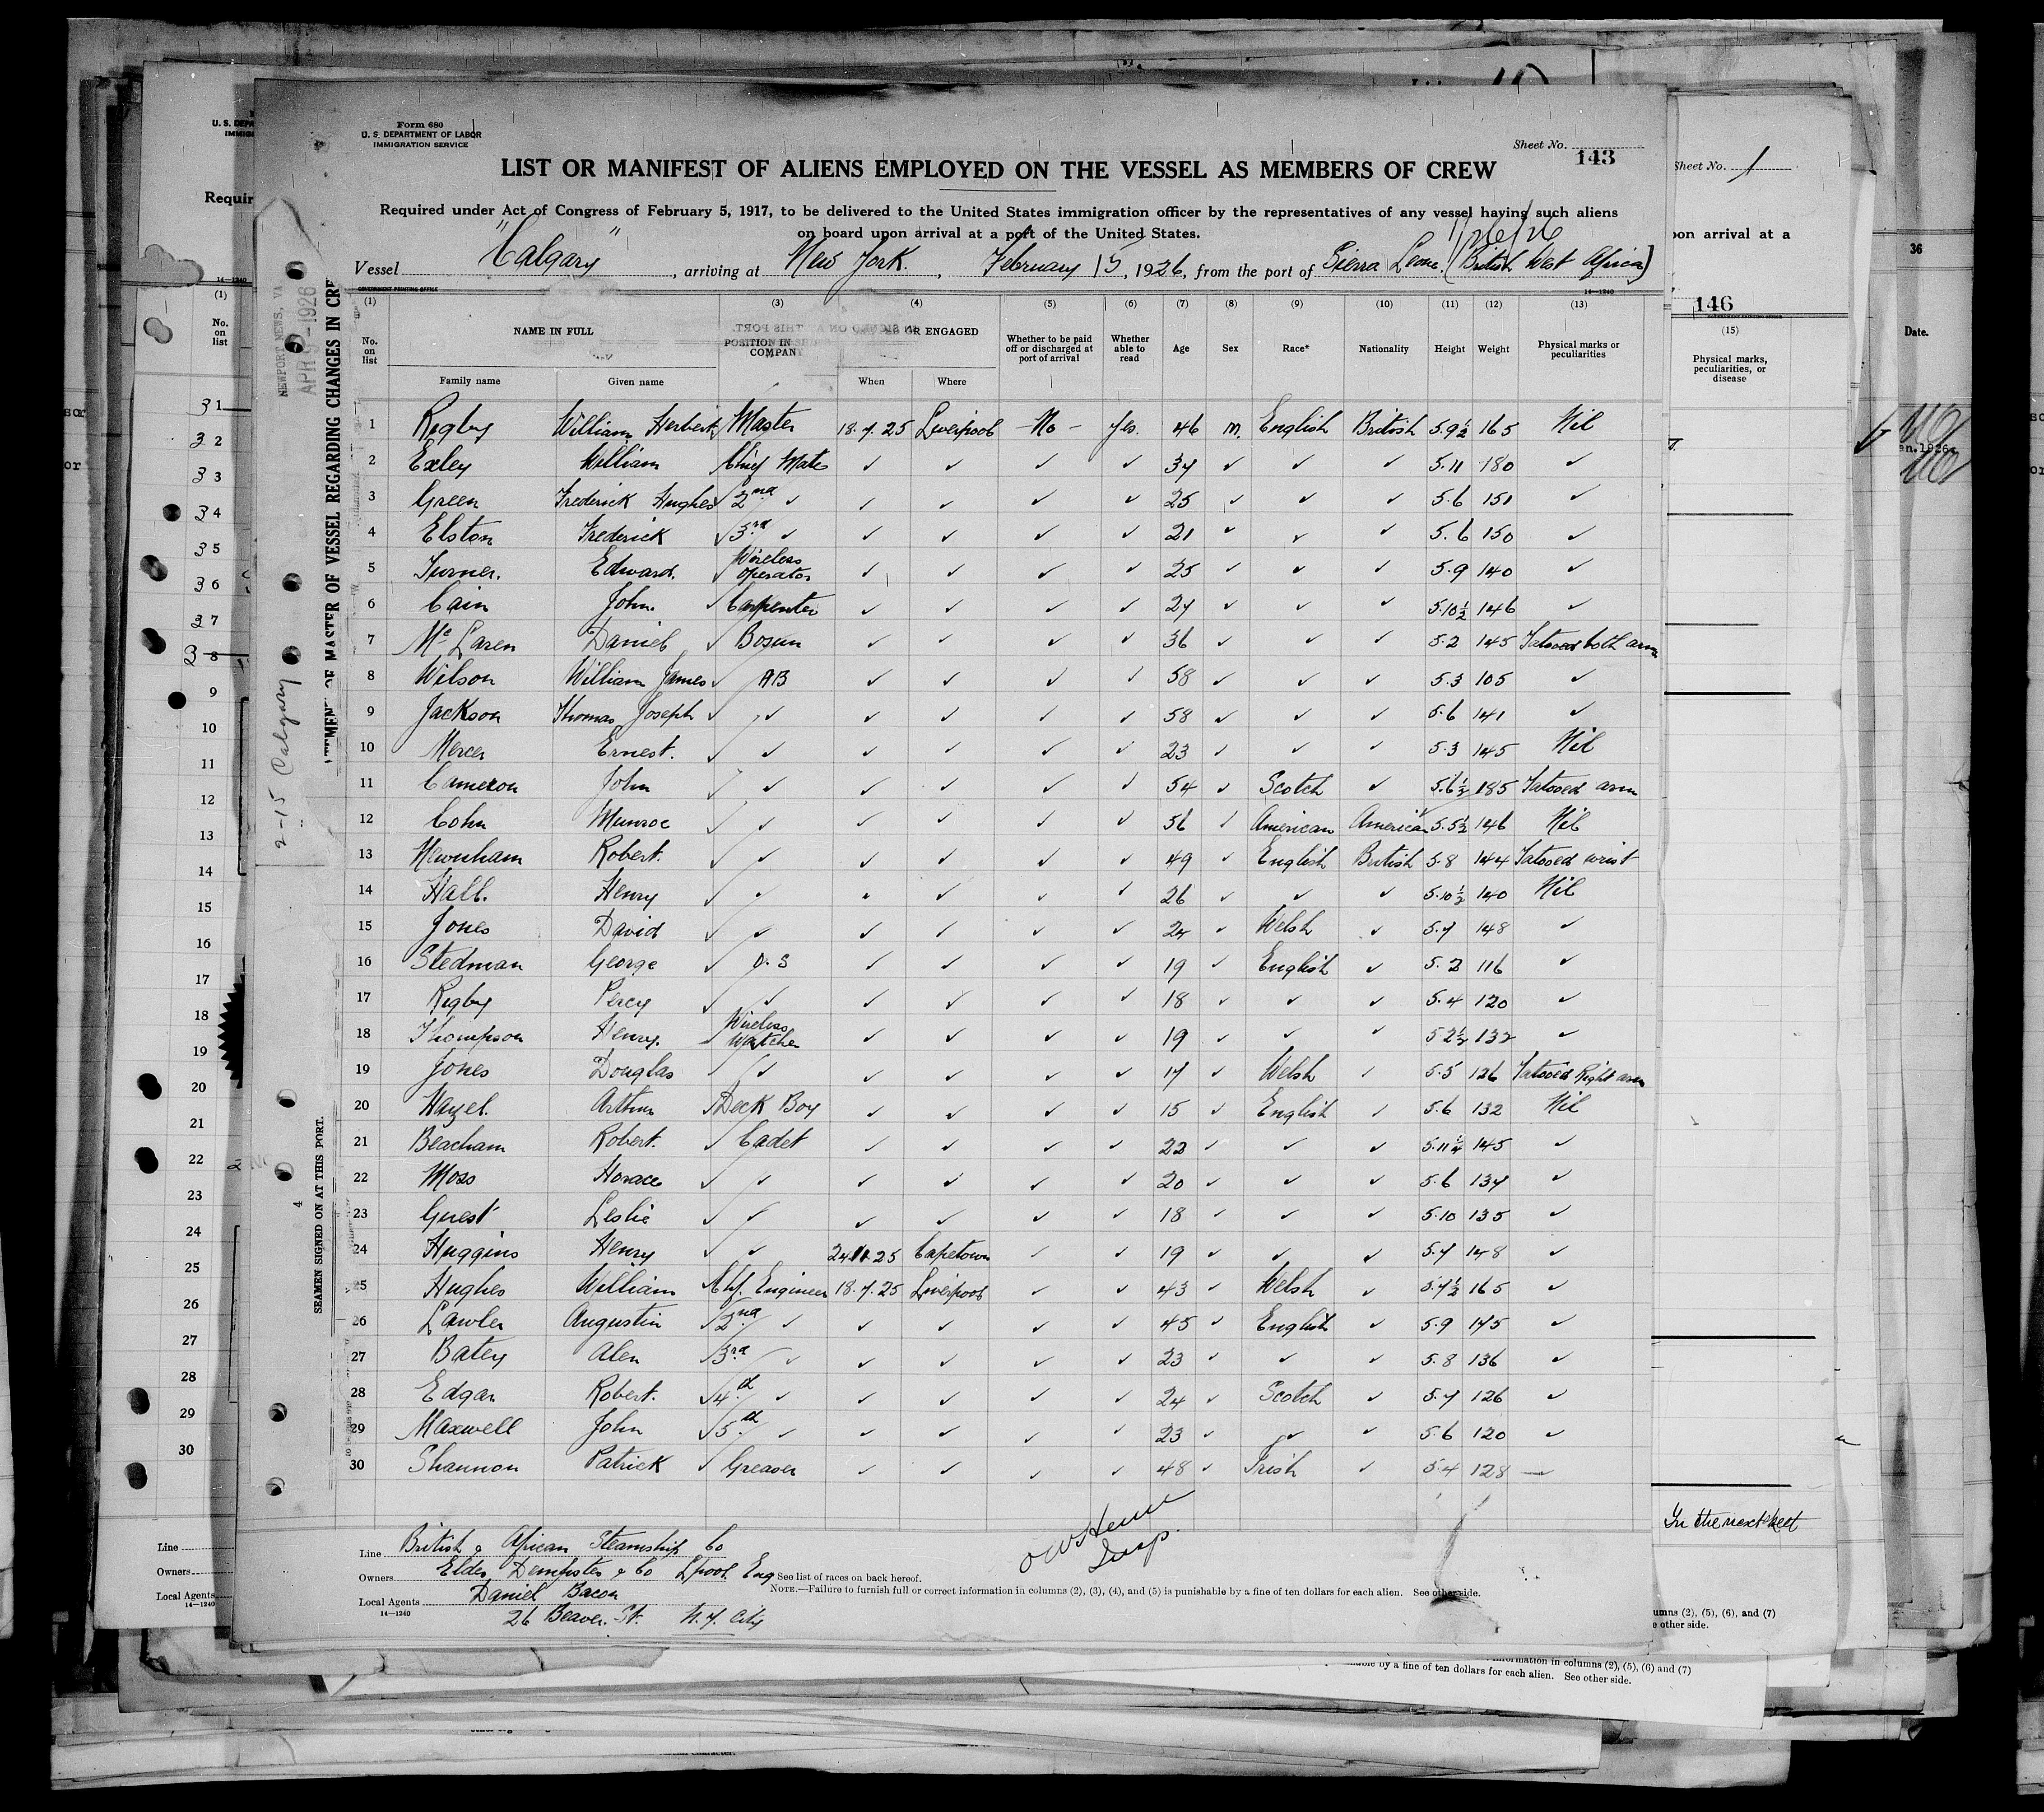 Form 680
U. S. DEPARTMENT OF LABOR
IMMIGRATION SERVICE
Sheet No. 143
LIST OR MANIFEST OF ALIENS EMPLOYED ON THE VESSEL AS MEMBERS OF CREW
Required under Act of Congress of February 5, 1917, to be delivered to the United States immigration officer by the representatives of any vessel having such aliens
on board upon arrival at a port of the United States.
Vessel "Calgary", arriving at New York, February 15, 1926, from the port of Sierra Leone (British West Africa)
(1) (3) (4) (5) (6) (7) (8) (9) (10) (11) (12) (13)
No. on list NAME IN FULL POSITION IN COMPANY OR ENGAGED Whether to be paid off or discharged at port of arrival Whether able to read Age Sex Race* Nationality Height Weight Physical marks or peculiarities
Family name Given name When Where
1 Rigby William Herbert Master 18.7.25 Liverpool -No- Yes. 46 M. English British 5.9½ 165 Nil
2 Exley William Chief Mate ✓ ✓ ✓ ✓ 37 ✓ ✓ ✓ 5.11 180 ✓
3 Green Frederick Hughes ✓ 2nd ✓ ✓ ✓ ✓ ✓ 25 ✓ ✓ ✓ 5.6 151 ✓
4 Elston Frederick ✓ 3rd ✓ ✓ ✓ ✓ ✓ 21 ✓ ✓ ✓ 5.6 150 ✓
5 Turner. Edward. ✓ Wireless operator ✓ ✓ ✓ ✓ 25 ✓ ✓ ✓ 5.9 140 ✓
6 Cain John. ✓ Carpenter ✓ ✓ ✓ ✓ 27 ✓ ✓ ✓ 5.10½ 146 ✓
7 McLaren Daniel ✓ Bosun ✓ ✓ ✓ ✓ 36 ✓ ✓ ✓ 5.2 145 Tatooed both arms
8 Wilson William James ✓ AB ✓ ✓ ✓ ✓ 58 ✓ ✓ ✓ 5.3 105 ✓
9 Jackson Thomas Joseph ✓ ✓ ✓ ✓ ✓ ✓ 58 ✓ ✓ ✓ 5.6 141 ✓
10 Mercer Ernest. ✓ ✓ ✓ ✓ ✓ ✓ 23 ✓ ✓ ✓ 5.3 145 Nil
11 Cameron John ✓ ✓ ✓ ✓ ✓ ✓ 54 ✓ Scotch ✓ 5.6½ 185 Tatooed arm
12 Cohn Munroe ✓ ✓ ✓ ✓ ✓ ✓ 56 ✓ American American 5.5½ 146 Nil
13 Newnham Robert. ✓ ✓ ✓ ✓ ✓ ✓ 49 ✓ English British 5.8 144 Tatooed wrist
14 Hall. Henry ✓ ✓ " ✓ ✓ ✓ 26 ✓ ✓ ✓ 5.10½ 140 Nil
15 Jones David ✓ ✓ ✓ ✓ ✓ ✓ 24 ✓ Welsh ✓ 5.7 148 ✓
16 Stedman George ✓ O.S ✓ ✓ ✓ ✓ 19 ✓ English ✓ 5.2 116 ✓
17 Rigby Percy ✓ ✓ ✓ ✓ ✓ ✓ 18 ✓ ✓ ✓ 5.4 120 ✓
18 Thompson Henry. ✓ Wireless Watcher ✓ ✓ ✓ ✓ 19 ✓ ✓ ✓ 5 2½ 132 ✓
19 Jones Douglas ✓ ✓ ✓ ✓ ✓ ✓ 17 ✓ Welsh ✓ 5.5 126 Tatooed Right arm
20 Hazel. Arthur ✓ Deck Boy ✓ ✓ ✓ ✓ 15 ✓ English ✓ 5.6 132 Nil
21 Beacham Robert. ✓ Cadet ✓ ✓ ✓ ✓ 22 ✓ ✓ ✓ 5.11¼ 145 ✓
22 Moss Horace ✓ ✓ ✓ ✓ ✓ ✓ 20 ✓ ✓ ✓ 5.6 137 ✓
23 Guest Leslie ✓ ✓ ✓ ✓ ✓ ✓ 18 ✓ ✓ ✓ 5.10 135 ✓
24 Huggins Henry ✓ ✓ 24.11.25 Capetown ✓ ✓ 19 ✓ ✓ ✓ 5.7 148 ✓
25 Hughes William Chf. Engineer 18.7.25 Liverpool ✓ ✓ 43 ✓ Welsh ✓ 5.7½ 165 ✓
26 Lawler Augustin ✓ 2nd ✓ ✓ ✓ ✓ ✓ 45 ✓ English ✓ 5.9 145 ✓
27 Batey Alen ✓ 3rd ✓ ✓ ✓ ✓ ✓ 23 ✓ ✓ ✓ 5.8 136 ✓
28 Edgar Robert. ✓ 4th ✓ ✓ ✓ ✓ ✓ 24 ✓ Scotch ✓ 5.7 126 ✓
29 Maxwell John ✓ 5th ✓ ✓ ✓ ✓ ✓ 23 ✓ ✓ ✓ 5.6 120 ✓
30 Shannon Patrick ✓ Greaser ✓ ✓ ✓ ✓ 48 ✓ Irish ✓ 5.4 128 —
Line British & African Steamship Co
Owners Elder Dempster & Co Lpool. Eng
See list of races on back hereof.
NOTE.—Failure to furnish full or correct information in columns (2), (3), (4), and (5) is punishable by a fine of ten dollars for each alien. See other side.
Local Agents Daniel Bacon
14—1240
26 Beaver. St. N.Y. City
Insp.
NEWPORT NEWS, VA
APR 9-1926
2-15 Calgary
OF MASTER OF VESSEL REGARDING CHANGES IN CRE
4
SEAMEN SIGNED ON AT THIS PORT.
Sheet No. 1
on arrival at a
146
(15)
Physical marks, peculiarities, or disease
In the next sheet
umns (2), (5), (6), and (7)
e other side.
information in columns (2), (5), (6) and (7)
able by a fine of ten dollars for each alien. See other side.
36
Date.
U. S. DEPA
IMMIG
Requir
14—1240
(1)
No. on list
31
32
33
34
35
36
37
38
9
10
11
12
13
14
15
16
17
18
19
20
21
22
23
24
25
26
27
28
29
30
Line
Owners
Local Agents
14—1240